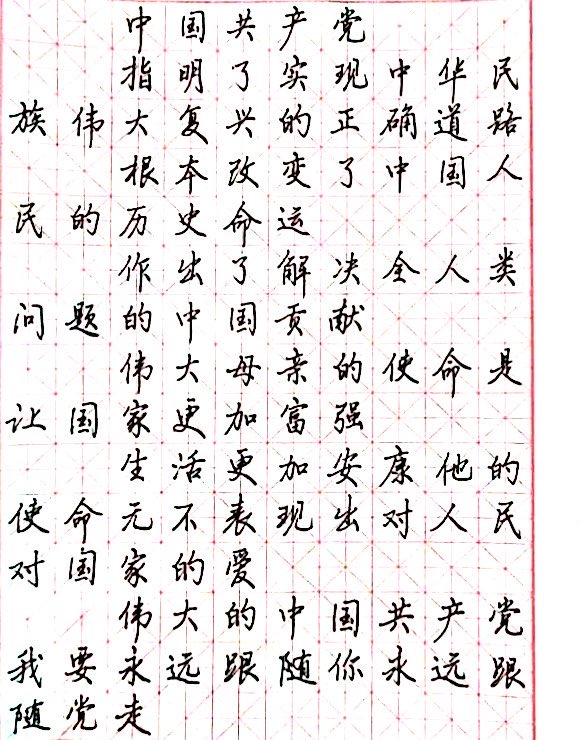 中国共产党
指明了实现中华民
族伟大复兴的正确道路
根本改变了中国人
民的历史命运
作出了解决全人类
问题的中国贡献
伟大母亲的使命是
让国家更加富强
生活更加安康他的
使命无不表现出对人民
对国家的爱
伟大的中国共产党
我要永远跟随你永远跟
随党走